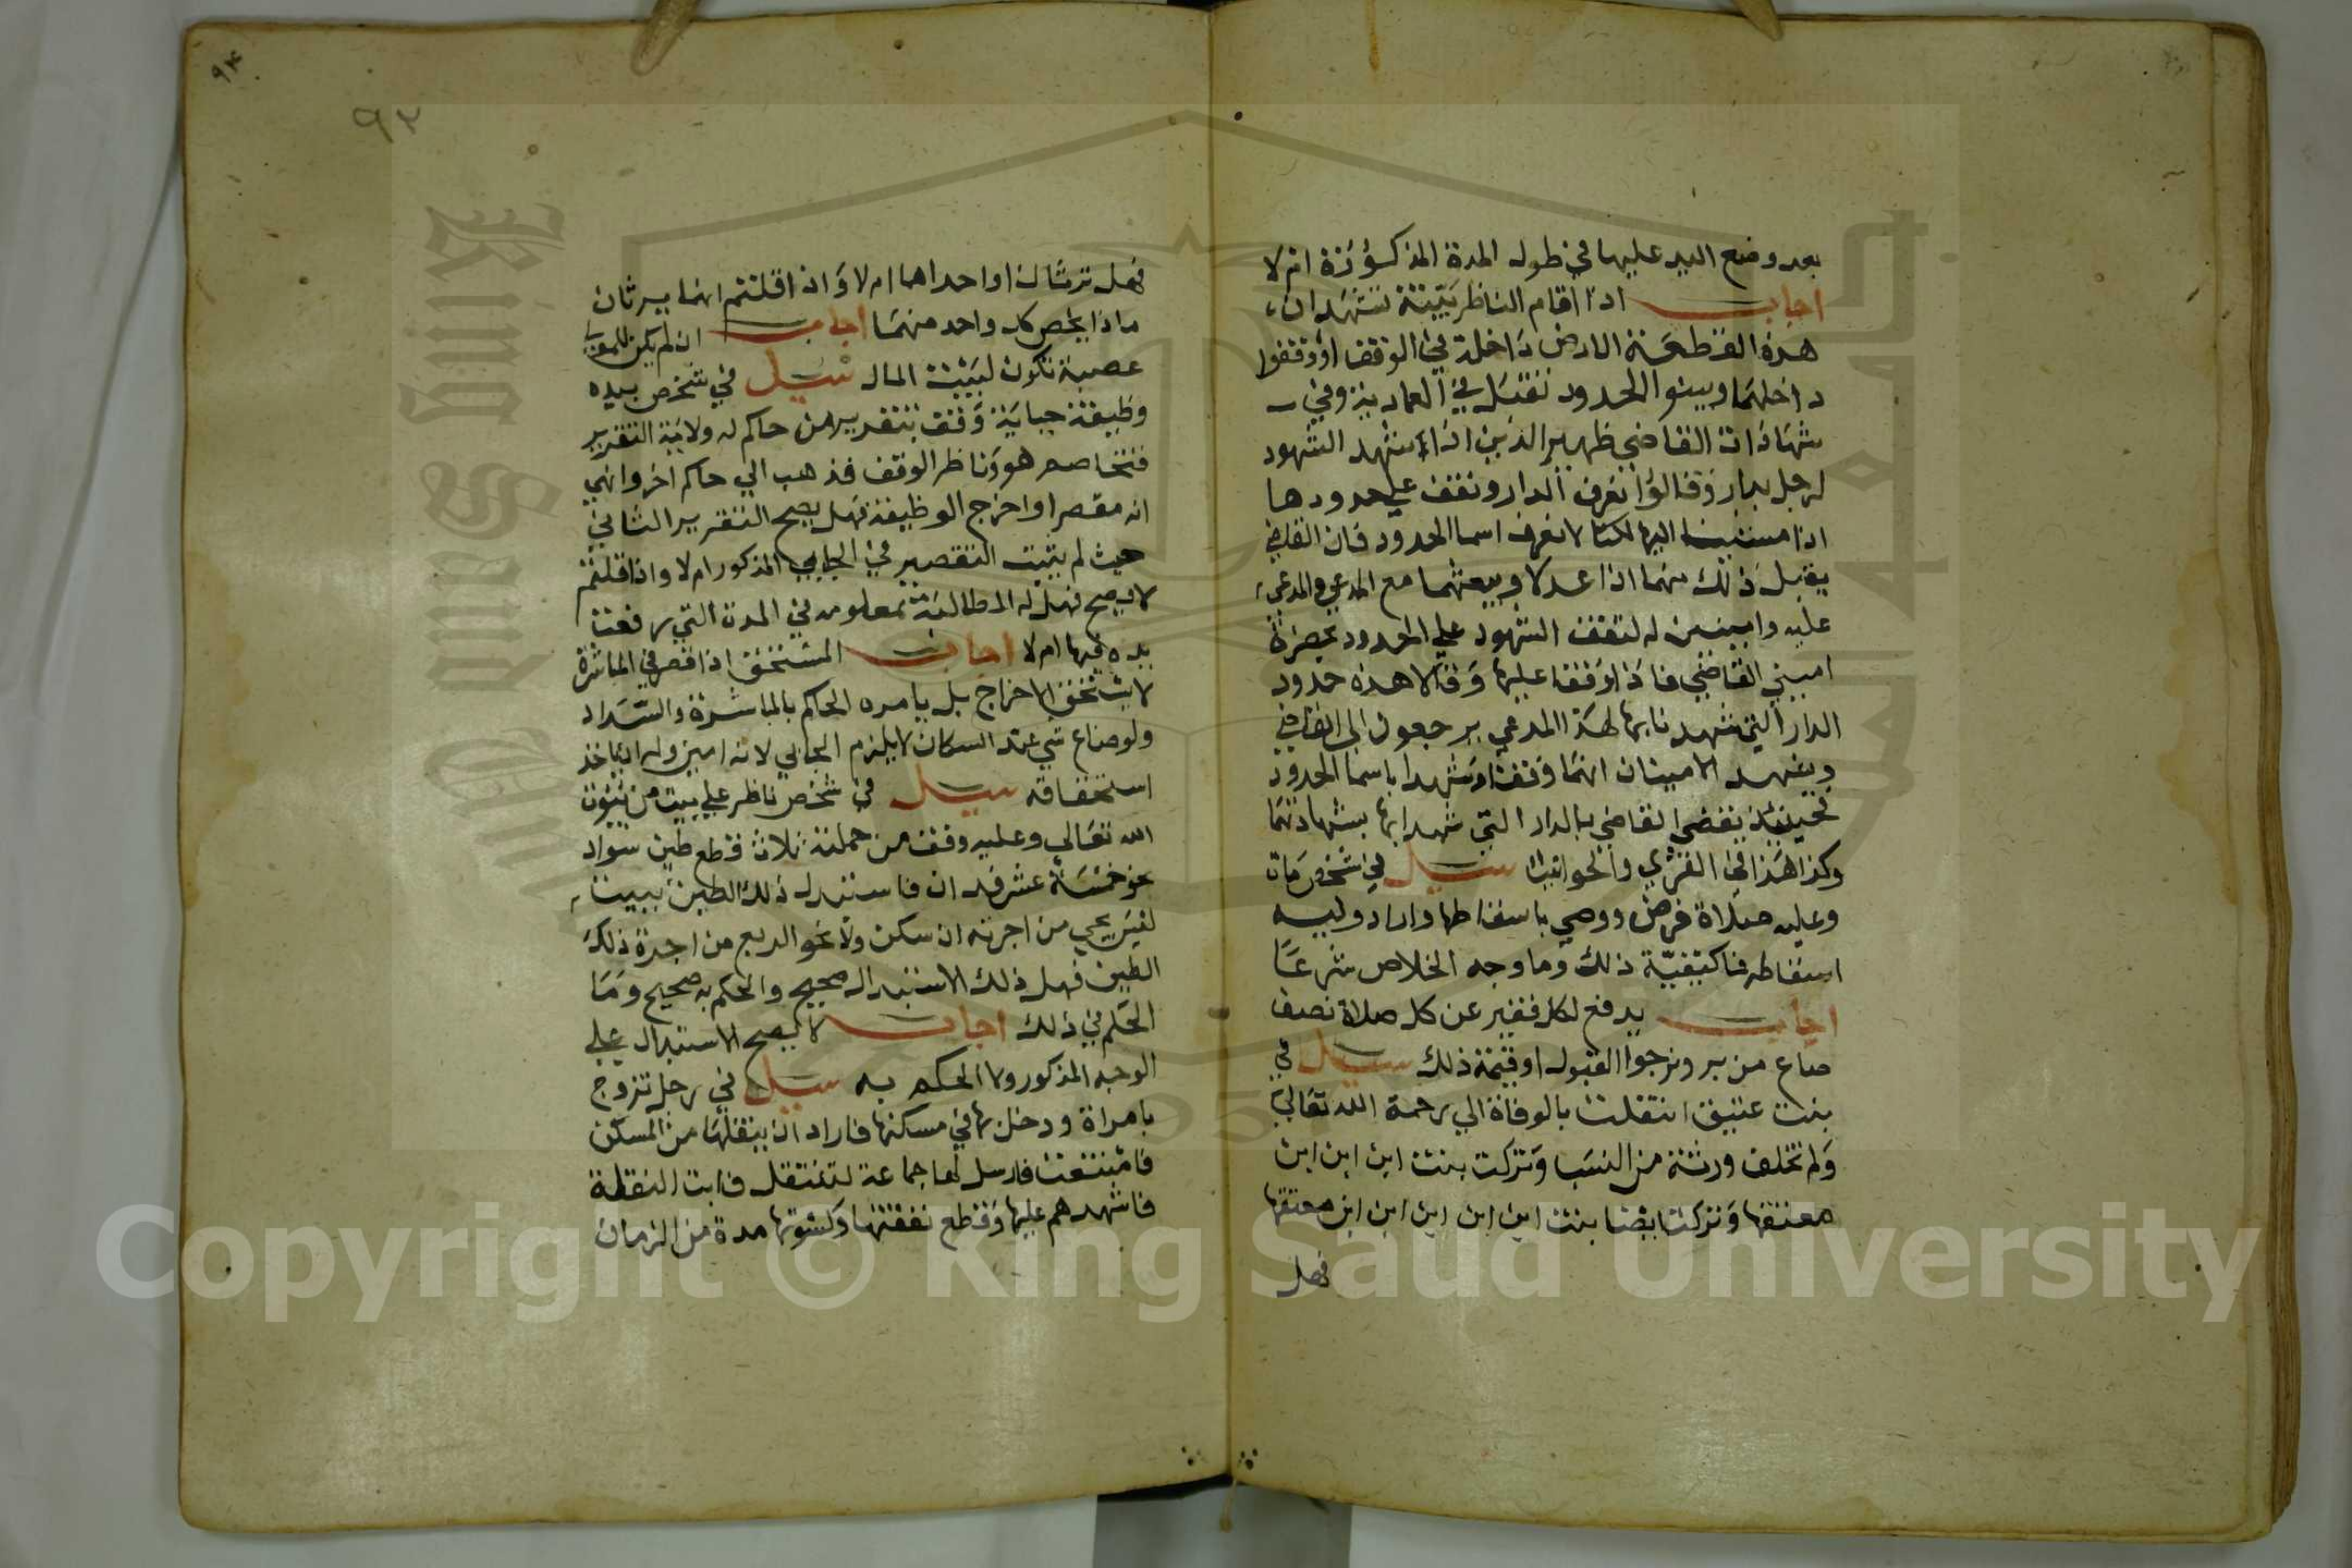 بعد وضع اليد عليها في طول المدة المذكورة ام لا
اجاب اذا اقام الناظر بينة تشهد ان
هذه القطعة الارض داخلة في الوقف او وقفوا
داخلها وبينوا الحدود تقبل في العمادية وفي
شهادات القاضي ظهير الدين اذا شهد الشهود
لرجل بدار وقالوا نعرف الدار ونقف علي حدودها
اذا مشينا اليها لكنا لا نعرف اسما الحدود فان القاضي
يقبل ذلك منهما اذا عدلا ويبعثهما مع المدعي والمدعى
عليه وامينين له لتقف الشهود علي الحدود بحضرة
اميني القاضي فاذا وقفا عليها وقالا هذه حدود
الدار التي شهدنا بها لهذا المدعي يرجعون الى القاضي
ويشهد الامينان انهما وقفا وشهدا باسما الحدود
فحينئذ يقضي القاضي بالدار التي شهدا بها بشهادتهما
وكذا هذا في القرى والحوانيت سيل في شخص مات
وعليه صلاة فرض ووصي باسقاطها واراد وليه
اسقاطه فما كيفية ذلك وما وجه الخلاص شرعا
اجاب يدفع لكل فقير عن كل صلاة نصف
صاع من بر ونرجوا القبول او قيمة ذلك سيل في
بنت عتيق انتقلت بالوفاة الي رحمة الله تعالي
ولم تخلف ورثة من النسب وتركت بنت ابن ابن ابن
معتقها وتركت ايضا بنت ابن ابن ابن ابن ابن معتقها
فهل
٩٤
٩٣
فهل ترثان او احداهما ام لا واذا قلتم انهما يرثان
ماذا يخص كل واحد منهما اجاب ان لم يكن للموب
عصبة تكون لبيت المال سيل في شخص بيده
وظيفة جباية وقف بتقرير من حاكم له ولاية التقرير
فتخاصم هو وناظر الوقف فذهب الي حاكم اخر وانهي
انه مقصر واخرج الوظيفة فهل يصح التقرير الثاني
حيث لم يثبت التقصير في الجابي المذكور ام لا واذا قلتم
لا يصح فهل له المطالبة بمعلومه في المدة التي رفعت
يده فيها ام لا اجاب المستحق اذا قصر في المباشرة
لا يستحق الاخراج بل يامره الحاكم بالمباشرة والسداد
ولو ضاع شي عند السكان لا يلزم الجابي لانه امين وله ان ياخذ
استحقاقه سيل في شخص ناظر علي بيت من بيوت
الله تعالي وعليه وقف من جملته ثلاث قطع طين سواد
نحو خمسة عشر فدان فاستبدل ذلك الطين ببيت
ليس يجي من اجرته ان سكن ولا نحو الربع من اجرة ذلك
الطين فهل ذلك الاستبدال صحيح والحكم به صحيح وما
الحكم في ذلك اجاب لا يصح الاستبدال علي
الوجه المذكور ولا الحكم به سيل في رجل تزوج
بامراة ودخل بها في مسكنها فاراد ان ينقلها من المسكن
فامتنعت فارسل لها جماعة لتنتقل فابت النقلة
فاشهدهم عليها وقطع نفقتها وكسوتها مدة من الزمان
Copyright © King Saud University